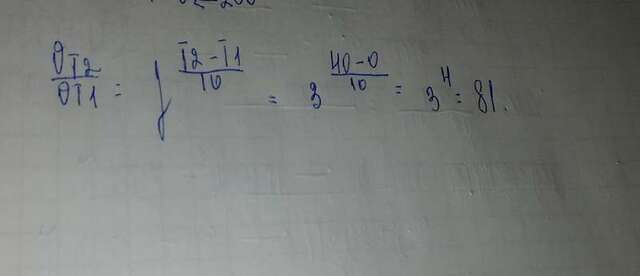 ϑT2/ϑT1 = γ^((T2-T1)/10) = 3^((40-0)/10) = 3^4 = 81.